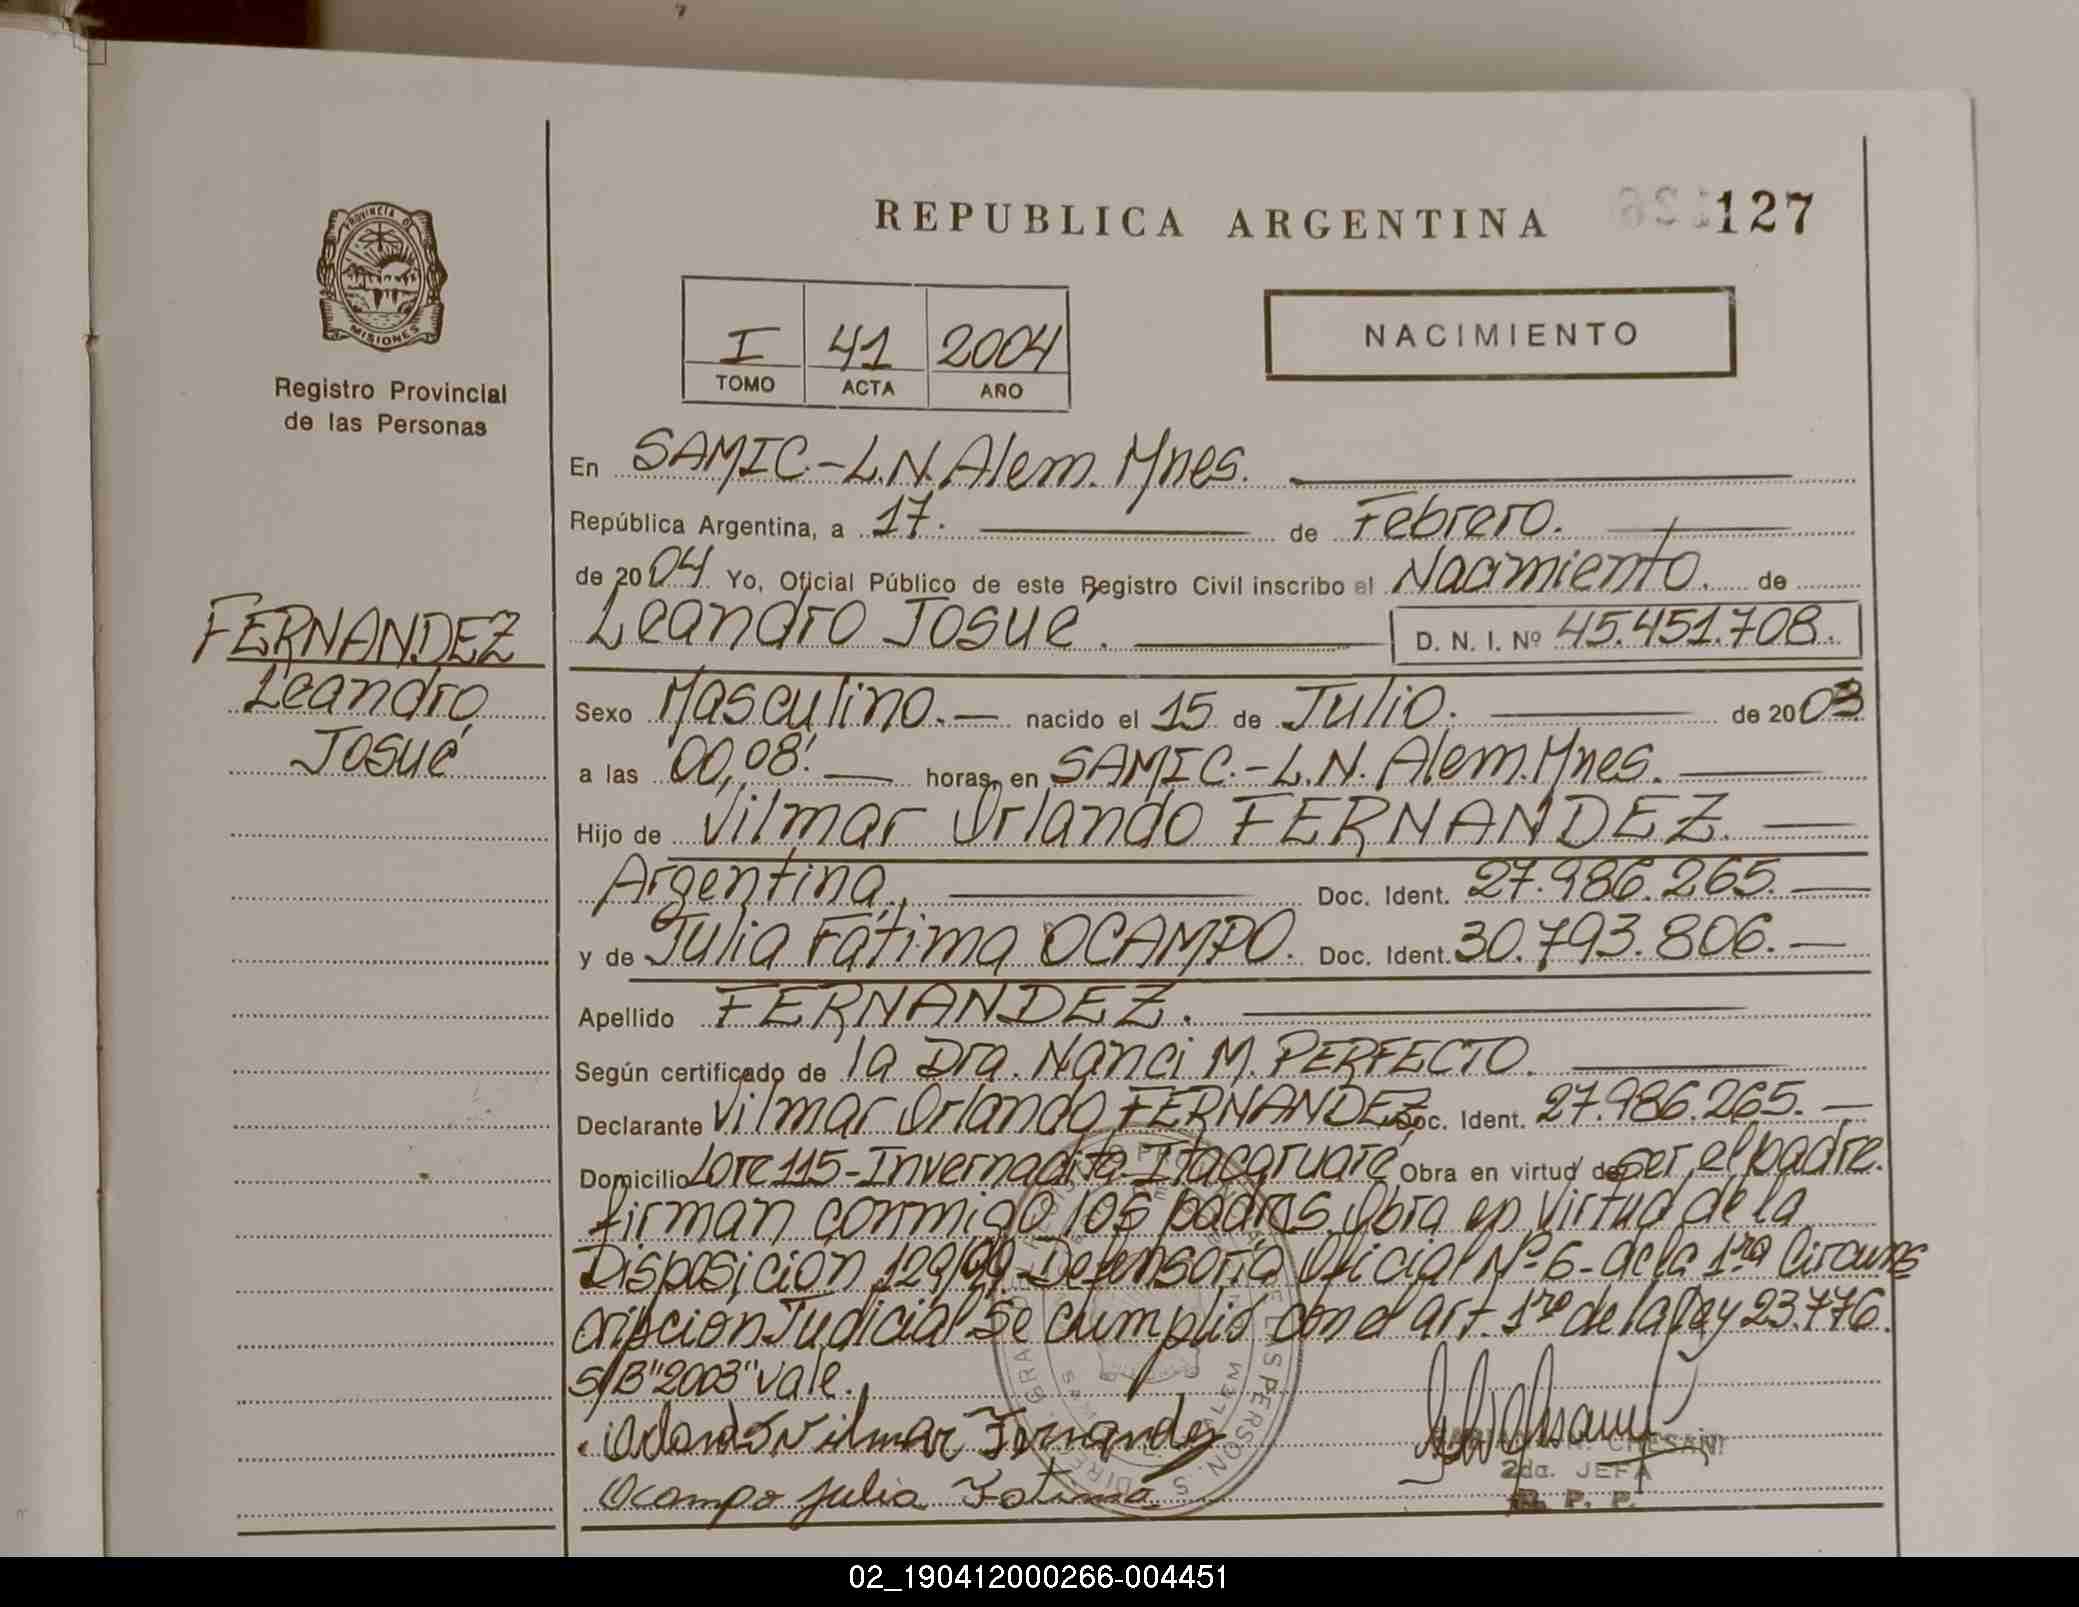 REPUBLICA ARGENTINA 127
PROVINCIA DE
MISIONES
Registro Provincial
de las Personas
I 41 2004
TOMO ACTA AÑO
NACIMIENTO
En SAMIC.-L.N. Alem. Mnes.
República Argentina, a 17. de Febrero.
de 2004 Yo, Oficial Público de este Registro Civil inscribo el Nacimiento. de
Leandro Josué. D. N. I. Nº 45.451.708.
FERNANDEZ
Leandro
Josué
Sexo Masculino.- nacido el 15 de Julio. de 2003
a las 00,08'. horas, en SAMIC.-L.N. Alem. Mnes.
Hijo de Vilmar Orlando FERNANDEZ.
Argentina, Doc. Ident. 27.986.265.
y de Julia Fátima OCAMPO. Doc. Ident. 30.793.806.
Apellido FERNANDEZ.
Según certificado de la Dra. Nanci M. PERFECTO.
Declarante Vilmar Orlando FERNANDEZ, Doc. Ident. 27.986.265.
Domicilio Lote 115-Invernadita-Itacaruaré, Obra en virtud de ser el padre.
firman conmigo los padres. Obra en virtud de la
Disposición 129/99-Defensoría Oficial Nº 6- de la 1ra Circuns
cripcion Judicial Se cumplió con el art. 1ro de la ley 23.776.
S/B "2003" vale.
Orlando Vilmar Fernandez
Ocampo Julia Fatima
CHESANI
2da. JEFA
R. P. P.
02_190412000266-004451